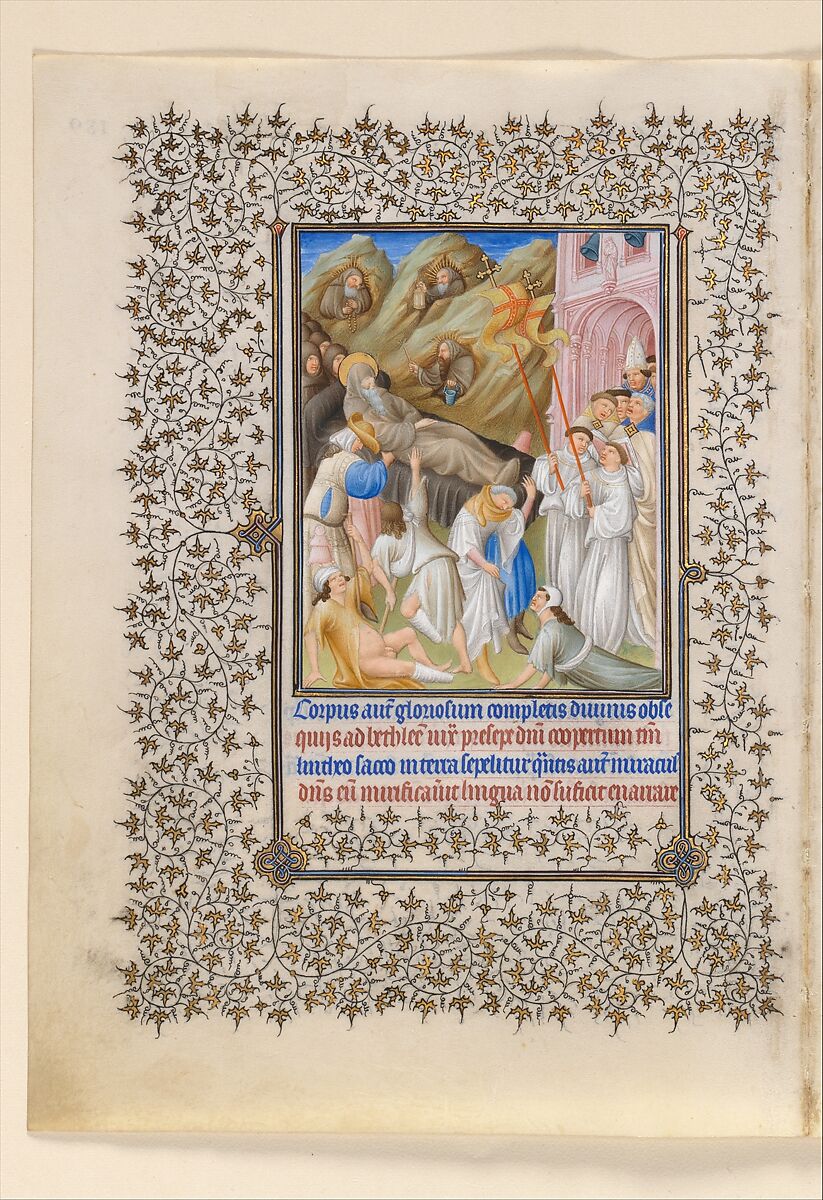 Corpus aut̃ gloriosum completis diuinis obse
quijs ad bethlee᷒ iux̃ presepe dñi coopertum tm̃
lintheo sacco in terra sepelitur q̃ntis aut̃ miracul᷒
dñs eũ mirificauit lingua nõ suficit enarrare